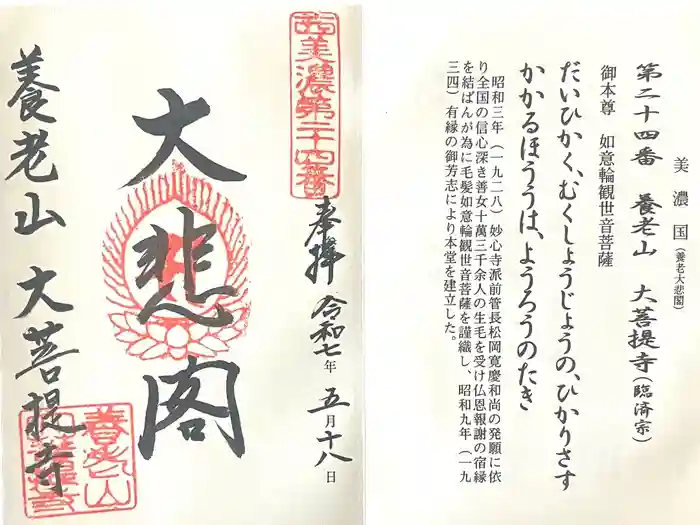 美濃国(養老大悲閣)
第二十四番 養老山 大菩提寺(臨済宗)
御本尊 如意輪観世音菩薩
だいひかく、むくしょうじょうの、ひかりさす
かかるほううは、ようろうのたき
昭和三年(一九二八)妙心寺派前管長松岡寛慶和尚の発願に依
り全国の信心深き善女十萬三千余人の生毛を受け仏恩報謝の宿縁
を結ばんが為に毛髪如意輪観世音菩薩を謹織し、昭和九年(一九
三四)有縁の御芳志により本堂を建立した。
美濃第二十四番
奉拝 令和七年 五月十八日
大悲閣
養老山 大菩提寺
養老山